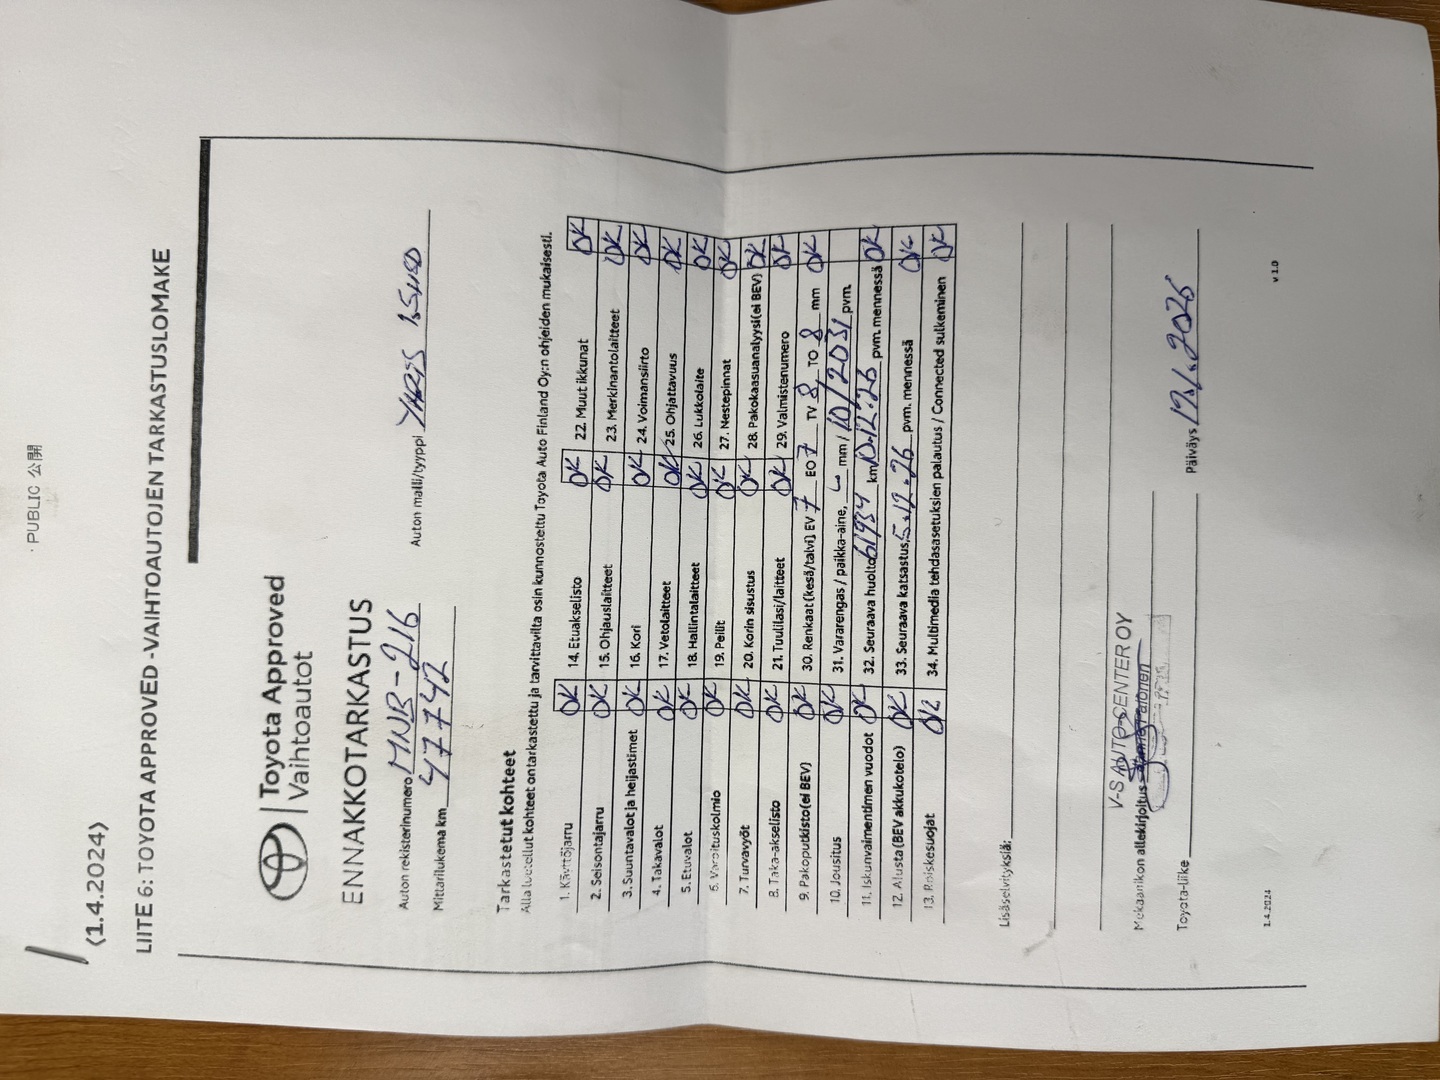 · PUBLIC 公開
(1.4.2024)
LIITE 6: TOYOTA APPROVED -VAIHTOAUTOJEN TARKASTUSLOMAKE
Toyota Approved
Vaihtoautot
ENNAKKOTARKASTUS
Auton rekisterinumero MNB-216 Auton malli/tyyppi YARIS 1.5HSD
Mittarilukema km 47742
Tarkastetut kohteet
Alla luetellut kohteet on tarkastettu ja tarvittavilta osin kunnostettu Toyota Auto Finland Oy:n ohjeiden mukaisesti.
1. Käyttöjarru OK 14. Etuakselisto OK 22. Muut ikkunat OK
2. Seisontajarru OK 15. Ohjauslaitteet OK 23. Merkinantolaitteet OK
3. Suuntavalot ja heijastimet OK 16. Kori OK 24. Voimansiirto OK
4. Takavalot OK 17. Vetolaitteet OK 25. Ohjattavuus OK
5. Etuvalot OK 18. Hallintalaitteet OK 26. Lukkolaite OK
6. Varoituskolmio OK 19. Peilit OK 27. Nestepinnat OK
7. Turvavyöt OK 20. Korin sisustus OK 28. Pakokaasuanalyysi (ei BEV) OK
8. Taka-akselisto OK 21. Tuulilasi/laitteet OK 29. Valmistenumero OK
9. Pakoputkisto (ei BEV) OK 30. Renkaat (kesä/talvi) EV 7 EO 7 TV 8 TO 8 mm OK
10. Jousitus OK 31. Vararengas / paikka-aine, mm / 10/2031 pvm.
11. Iskunvaimentimen vuodot OK 32. Seuraava huolto 61934 km 10.12.26 pvm. mennessä OK
12. Alusta (BEV akkukotelo) OK 33. Seuraava katsastus 5.12.26 pvm. mennessä OK
13. Roiskesuojat OK 34. Multimedia tehdasasetuksien palautus / Connected sulkeminen OK
Lisäselvityksiä:
V-S AUTO-CENTER OY
Mekaanikon allekirjoitus
Toyota-liike Päiväys 17.1.2026
1.4.2024 v 1.0